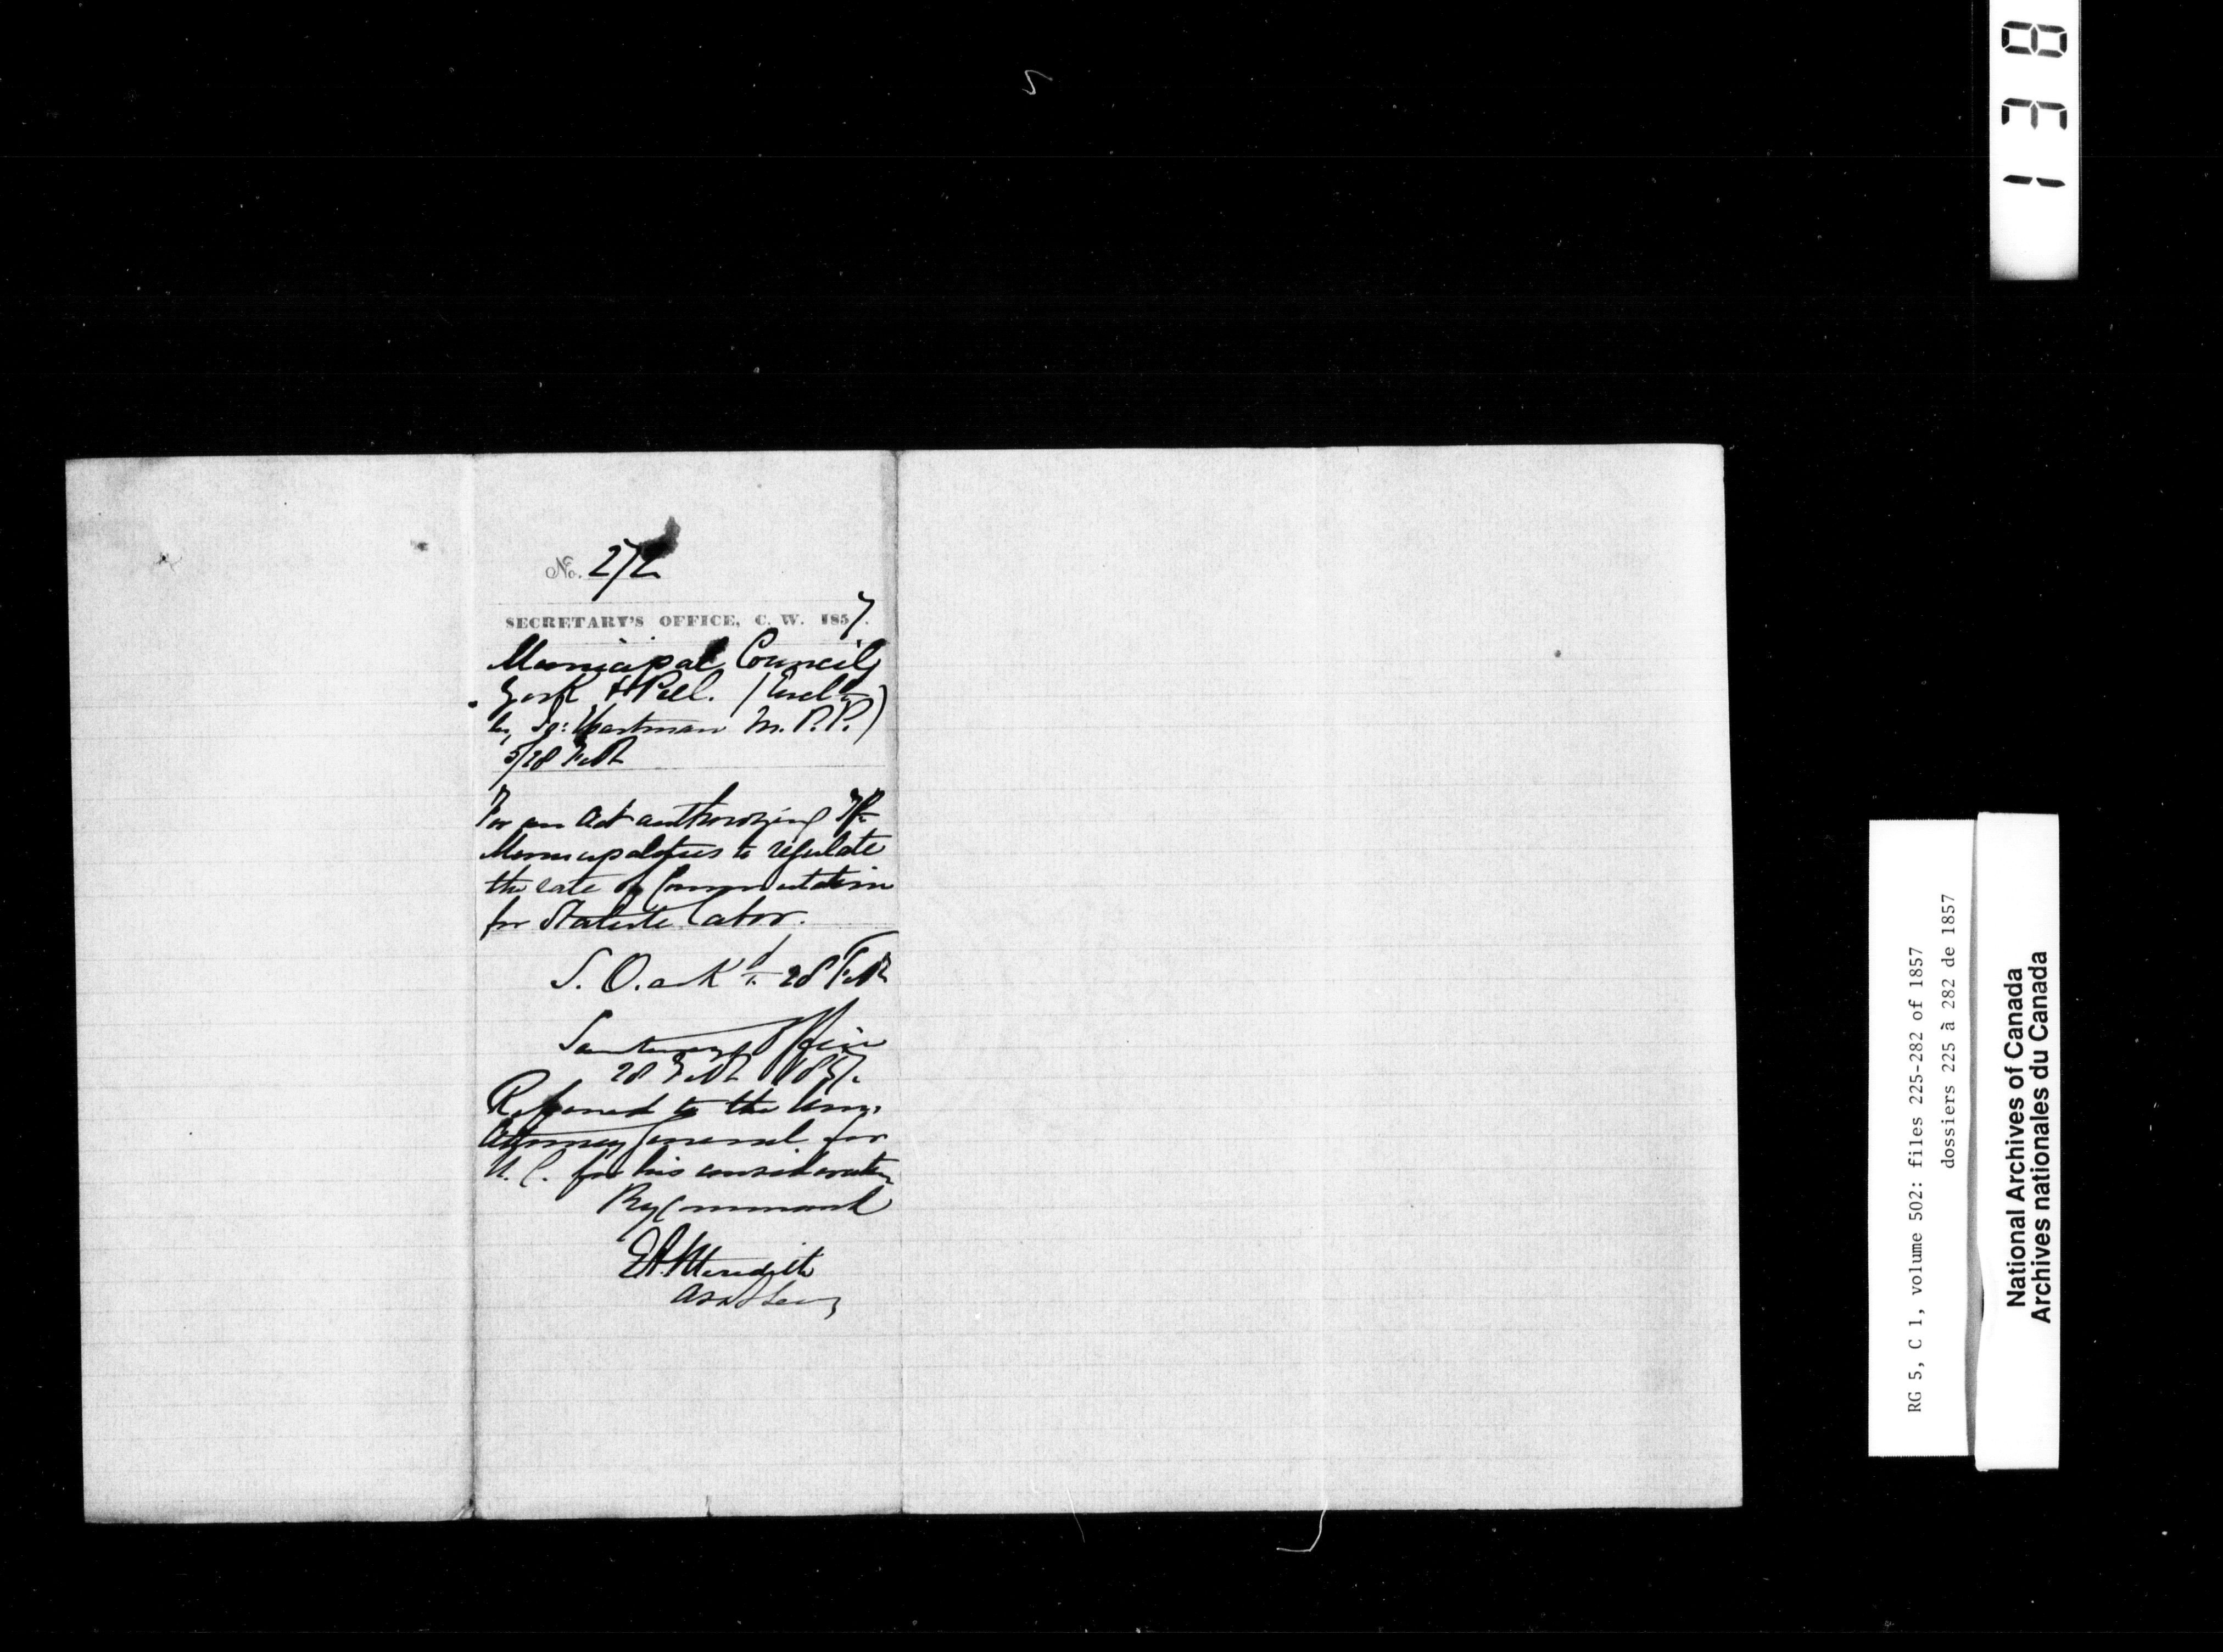 1 3 8
No. 272
SECRETARY'S OFFICE, C. W. 1857.
Municipal Council
York & Peel. (Encld
by Jos: Hartman M.P.P.)
5/28 Feb
For an Act authorizing Tp
Municipalities to regulate
the rate of Commutation
for Statute labor.
S. O. ackd 28 Feb
Secretary's Office
28 Feb 1857.
Referred to the Hon.
Attorney General for
U. C. for his consideration
By Command
E A Meredith
Asst Secy
RG 5, C 1, volume 502: files 225-282 of 1857
dossiers 225 à 282 de 1857
National Archives of Canada
Archives nationales du Canada